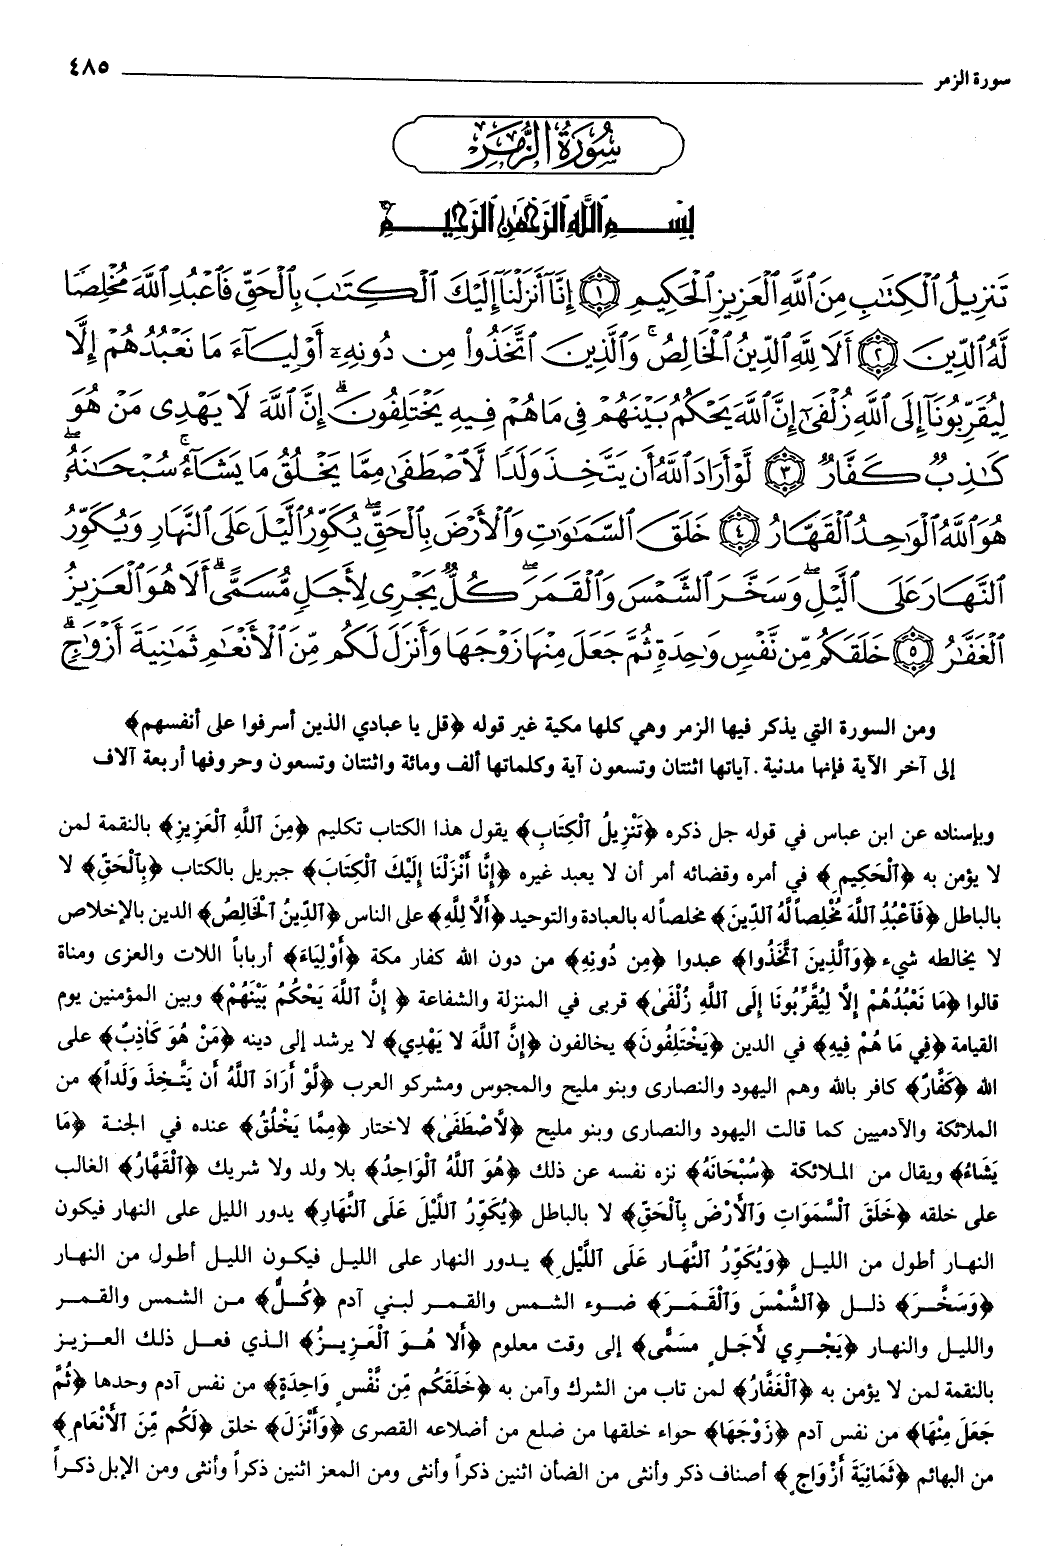 سورة الزمر ٤٨٥
سُورَةُ الزُّمَرِ
بِسْمِ ٱللَّهِ ٱلرَّحْمَٰنِ ٱلرَّحِيمِ
تَنزِيلُ ٱلْكِتَٰبِ مِنَ ٱللَّهِ ٱلْعَزِيزِ ٱلْحَكِيمِ ١ إِنَّآ أَنزَلْنَآ إِلَيْكَ ٱلْكِتَٰبَ بِٱلْحَقِّ فَٱعْبُدِ ٱللَّهَ مُخْلِصًا
لَّهُ ٱلدِّينَ ٢ أَلَا لِلَّهِ ٱلدِّينُ ٱلْخَالِصُ ۚ وَٱلَّذِينَ ٱتَّخَذُوا۟ مِن دُونِهِۦٓ أَوْلِيَآءَ مَا نَعْبُدُهُمْ إِلَّا
لِيُقَرِّبُونَآ إِلَى ٱللَّهِ زُلْفَىٰٓ إِنَّ ٱللَّهَ يَحْكُمُ بَيْنَهُمْ فِى مَا هُمْ فِيهِ يَخْتَلِفُونَ ۗ إِنَّ ٱللَّهَ لَا يَهْدِى مَنْ هُوَ
كَٰذِبٌ كَفَّارٌ ٣ لَّوْ أَرَادَ ٱللَّهُ أَن يَتَّخِذَ وَلَدًا لَّٱصْطَفَىٰ مِمَّا يَخْلُقُ مَا يَشَآءُ ۚ سُبْحَٰنَهُۥ ۖ
هُوَ ٱللَّهُ ٱلْوَٰحِدُ ٱلْقَهَّارُ ٤ خَلَقَ ٱلسَّمَٰوَٰتِ وَٱلْأَرْضَ بِٱلْحَقِّ ۖ يُكَوِّرُ ٱلَّيْلَ عَلَى ٱلنَّهَارِ وَيُكَوِّرُ
ٱلنَّهَارَ عَلَى ٱلَّيْلِ ۖ وَسَخَّرَ ٱلشَّمْسَ وَٱلْقَمَرَ ۖ كُلٌّ يَجْرِى لِأَجَلٍ مُّسَمًّى ۗ أَلَا هُوَ ٱلْعَزِيزُ
ٱلْغَفَّٰرُ ٥ خَلَقَكُم مِّن نَّفْسٍ وَٰحِدَةٍ ثُمَّ جَعَلَ مِنْهَا زَوْجَهَا وَأَنزَلَ لَكُم مِّنَ ٱلْأَنْعَٰمِ ثَمَٰنِيَةَ أَزْوَٰجٍ ۚ
ومن السورة التي يذكر فيها الزمر وهي كلها مكية غير قوله ﴿قل يا عبادي الذين أسرفوا على أنفسهم﴾
إلى آخر الآية فإنها مدنية. آياتها اثنتان وتسعون آية وكلماتها ألف ومائة واثنتان وتسعون وحروفها أربعة آلاف
وبإسناده عن ابن عباس في قوله جل ذكره ﴿تَنْزِيلُ ٱلْكِتَابِ﴾ يقول هذا الكتاب تكليم ﴿مِنَ ٱللَّهِ ٱلْعَزِيزِ﴾ بالنقمة لمن
لا يؤمن به ﴿ٱلْحَكِيمِ﴾ في أمره وقضائه أمر أن لا يعبد غيره ﴿إِنَّا أَنْزَلْنَا إِلَيْكَ ٱلْكِتَابَ﴾ جبريل بالكتاب ﴿بِٱلْحَقِّ﴾ لا
بالباطل ﴿فَٱعْبُدُ ٱللَّهَ مُخْلِصاً لَّهُ ٱلدِّينَ﴾ مخلصاً له بالعبادة والتوحيد ﴿أَلاَ لِلَّهِ﴾ على الناس ﴿ٱلدِّينُ ٱلْخَالِصُ﴾ الدين بالإخلاص
لا يخالطه شيء ﴿وَٱلَّذِينَ ٱتَّخَذُوا﴾ عبدوا ﴿مِن دُونِهِ﴾ من دون الله كفار مكة ﴿أَوْلِيَاءَ﴾ أرباباً اللات والعزى ومناة
قالوا ﴿مَا نَعْبُدُهُمْ إِلَّا لِيُقَرِّبُونَا إِلَى ٱللَّهِ زُلْفَىٰ﴾ قربى في المنزلة والشفاعة ﴿إِنَّ ٱللَّهَ يَحْكُمُ بَيْنَهُمْ﴾ وبين المؤمنين يوم
القيامة ﴿فِي مَا هُمْ فِيهِ﴾ في الدين ﴿يَخْتَلِفُونَ﴾ يخالفون ﴿إِنَّ ٱللَّهَ لا يَهْدِي﴾ لا يرشد إلى دينه ﴿مَنْ هُوَ كَاذِبٌ﴾ على
الله ﴿كَفَّارٌ﴾ كافر بالله وهم اليهود والنصارى وبنو مليح والمجوس ومشركو العرب ﴿لَوْ أَرَادَ ٱللَّهُ أَن يَتَّخِذَ وَلَداً﴾ من
الملائكة والآدميين كما قالت اليهود والنصارى وبنو مليح ﴿لَاَّصْطَفَىٰ﴾ لاختار ﴿مِمَّا يَخْلُقُ﴾ عنده في الجنة ﴿مَا
يَشَاءُ﴾ ويقال من الملائكة ﴿سُبْحَانَهُ﴾ نزه نفسه عن ذلك ﴿هُوَ ٱللَّهُ ٱلْوَاحِدُ﴾ بلا ولد ولا شريك ﴿ٱلْقَهَّارُ﴾ الغالب
على خلقه ﴿خَلَقَ ٱلسَّمَوَاتِ وَٱلأَرْضَ بِٱلْحَقِّ﴾ لا بالباطل ﴿يُكَوِّرُ ٱللَّيْلَ عَلَى ٱلنَّهَارِ﴾ يدور الليل على النهار فيكون
النهار أطول من الليل ﴿وَيُكَوِّرُ ٱلنَّهَارَ عَلَى ٱللَّيْلِ﴾ يدور النهار على الليل فيكون الليل أطول من النهار
﴿وَسَخَّرَ﴾ ذلل ﴿ٱلشَّمْسَ وَٱلْقَمَرَ﴾ ضوء الشمس والقمر لبني آدم ﴿كُلٌّ﴾ من الشمس والقمر
والليل والنهار ﴿يَجْرِي لأَجَلٍ مَسَمًّى﴾ إلى وقت معلوم ﴿أَلا هُوَ ٱلْعَزِيزُ﴾ الذي فعل ذلك العزيز
بالنقمة لمن لا يؤمن به ﴿ٱلْغَفَّارُ﴾ لمن تاب من الشرك وآمن به ﴿خَلَقَكُم مِّن نَّفْسٍ وَاحِدَةٍ﴾ من نفس آدم وحدها ﴿ثُمَّ
جَعَلَ مِنْهَا﴾ من نفس آدم ﴿زَوْجَهَا﴾ حواء خلقها من ضلع من أضلاعه القصرى ﴿وَأَنْزَلَ﴾ خلق ﴿لَكُم مِّنَ ٱلأَنْعَامِ﴾
من البهائم ﴿ثَمَانِيَةَ أَزْوَاجٍ﴾ أصناف ذكر وأنثى من الضأن اثنين ذكراً وأنثى ومن المعز اثنين ذكراً وأنثى ومن الإبل ذكراً